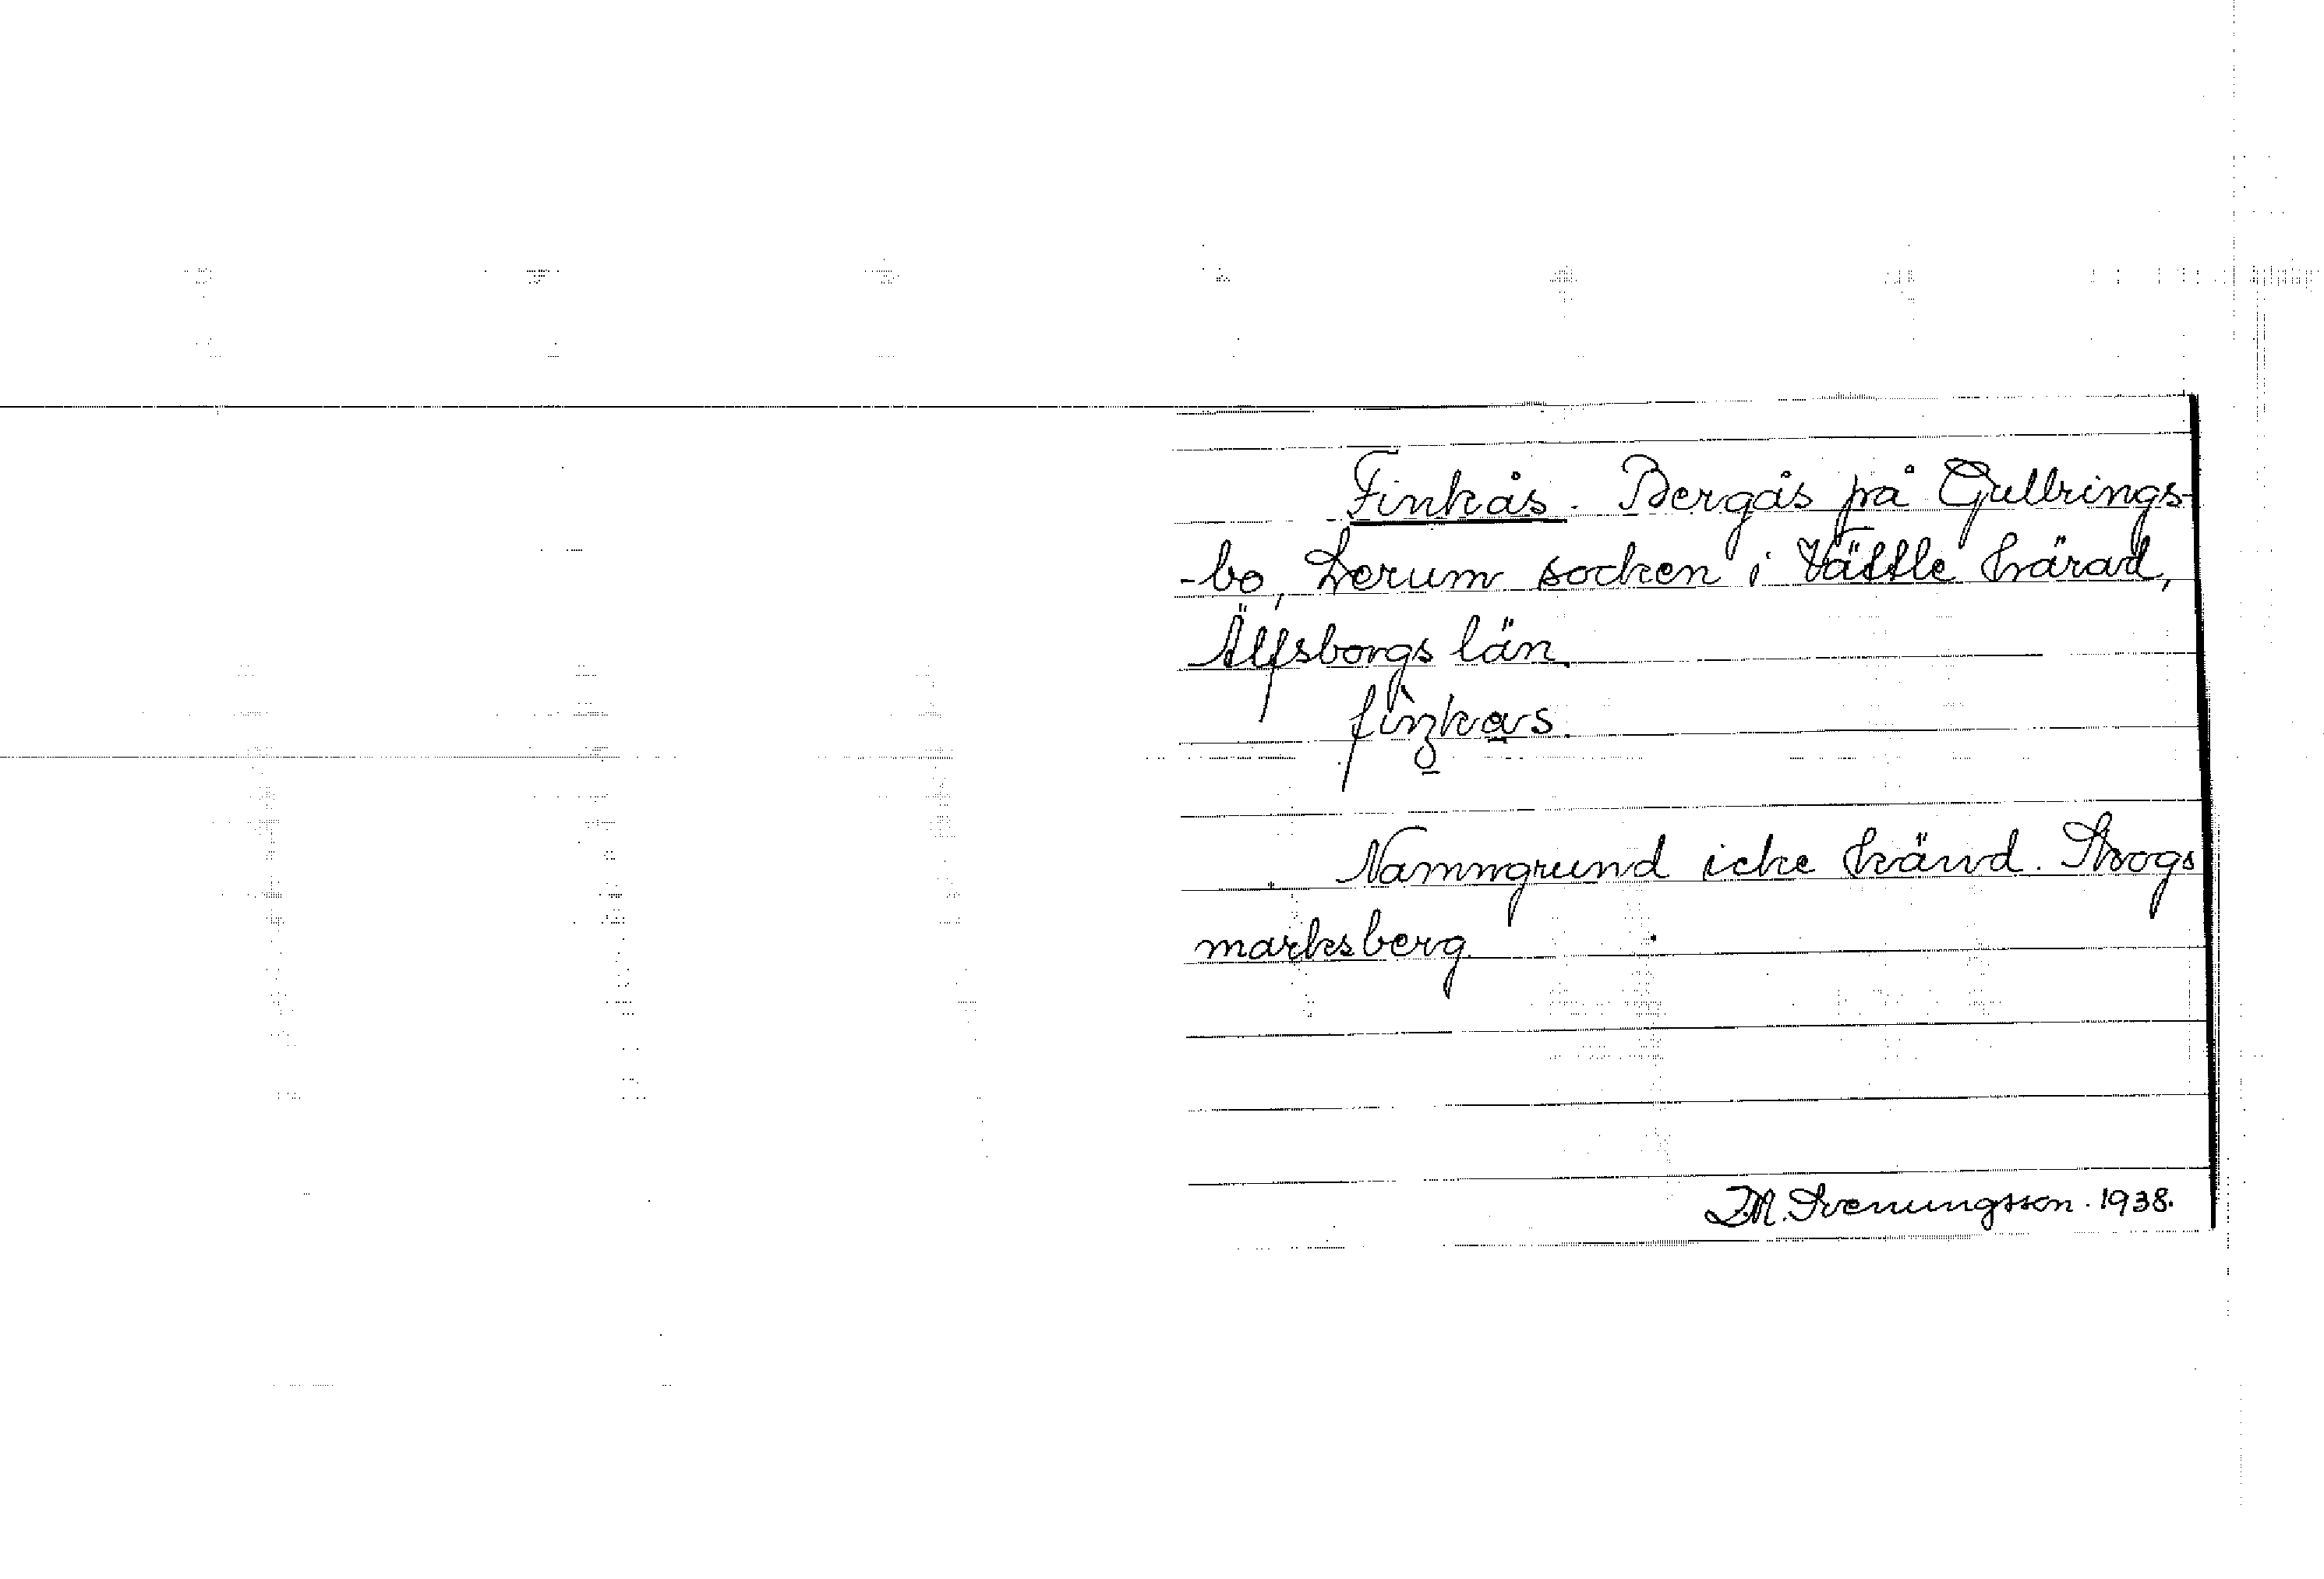 Finkås. Bergås på Gullrings-
-bo, Lerum socken i Vättle härad,
Älfsborgs län.
Namngrund icke känd. Skogs
marksberg.
J.M. Svenungsson. 1938.